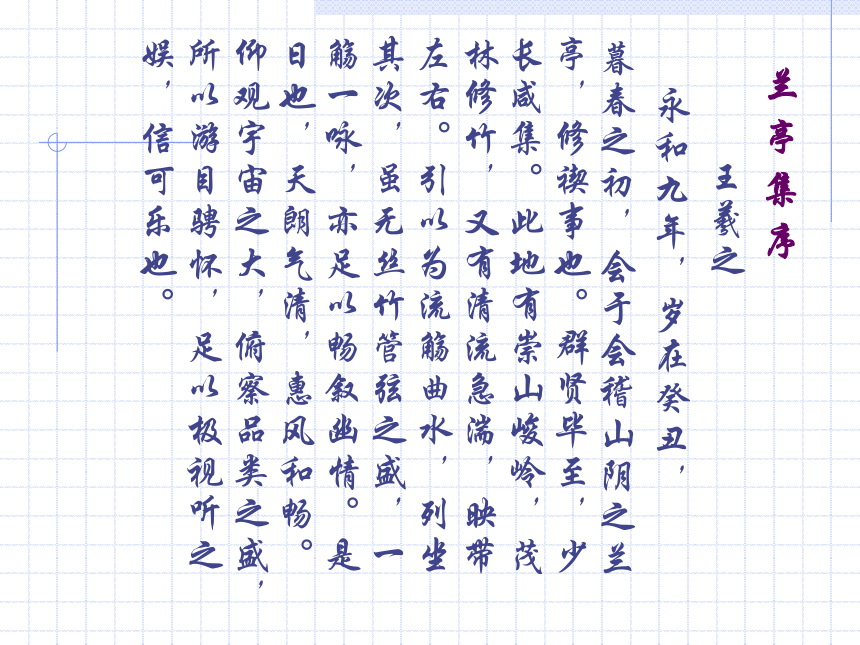 兰亭集序
王羲之
永和九年，岁在癸丑，
暮春之初，会于会稽山阴之兰
亭，修禊事也。群贤毕至，少
长咸集。此地有崇山峻岭，茂
林修竹，又有清流急湍，映带
左右。引以为流觞曲水，列坐
其次，虽无丝竹管弦之盛，一
觞一咏，亦足以畅叙幽情。是
日也，天朗气清，惠风和畅。
仰观宇宙之大，俯察品类之盛，
所以游目骋怀，足以极视听之
娱，信可乐也。